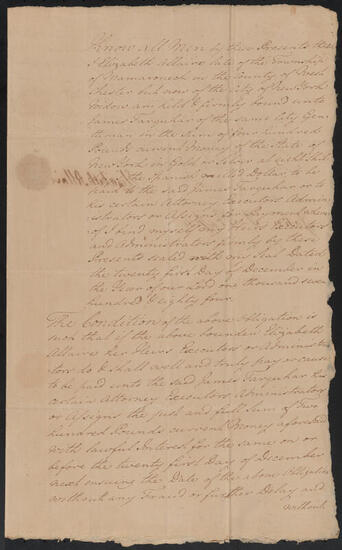 Know all Men by these Presents that
I Elizabeth Allaire late of the Township
of Mamaroneck in the County of West
Chester but now of the City of New York
Widow am held & firmly bound unto
James Farquhar of the same City Gen
tleman in the Sum of four hundred
Pounds current Money of the State of
New York in Gold or Silver at eight Shil
the Spanish mill'd Dollar, to be
paid to the said James Farquhar or to
his certain Attorney Executors Admin
istrators or Assigns for Payment whereof
I bind myself my Heirs Executors
and Administrators firmly by these
Presents sealed with my Seal Dated
the twenty first Day of December in
the Year of our Lord one thousand seven
hundred & eighty four.
The Condition of the above Obligation is
such that if the above bounden Elizabeth
Allaire her Heirs Executors or Administra
tors do & shall well and truly pay or cause
to be paid unto the said James Farquhar his
certain Attorney Executors Administrators
or Assigns the just and full Sum of Two
hundred Pounds current Money aforesaid
with lawful Interest for the same on or
before the twenty first Day of December
next ensuing the Date of the above Obligation
without any Fraud or further Delay and
without